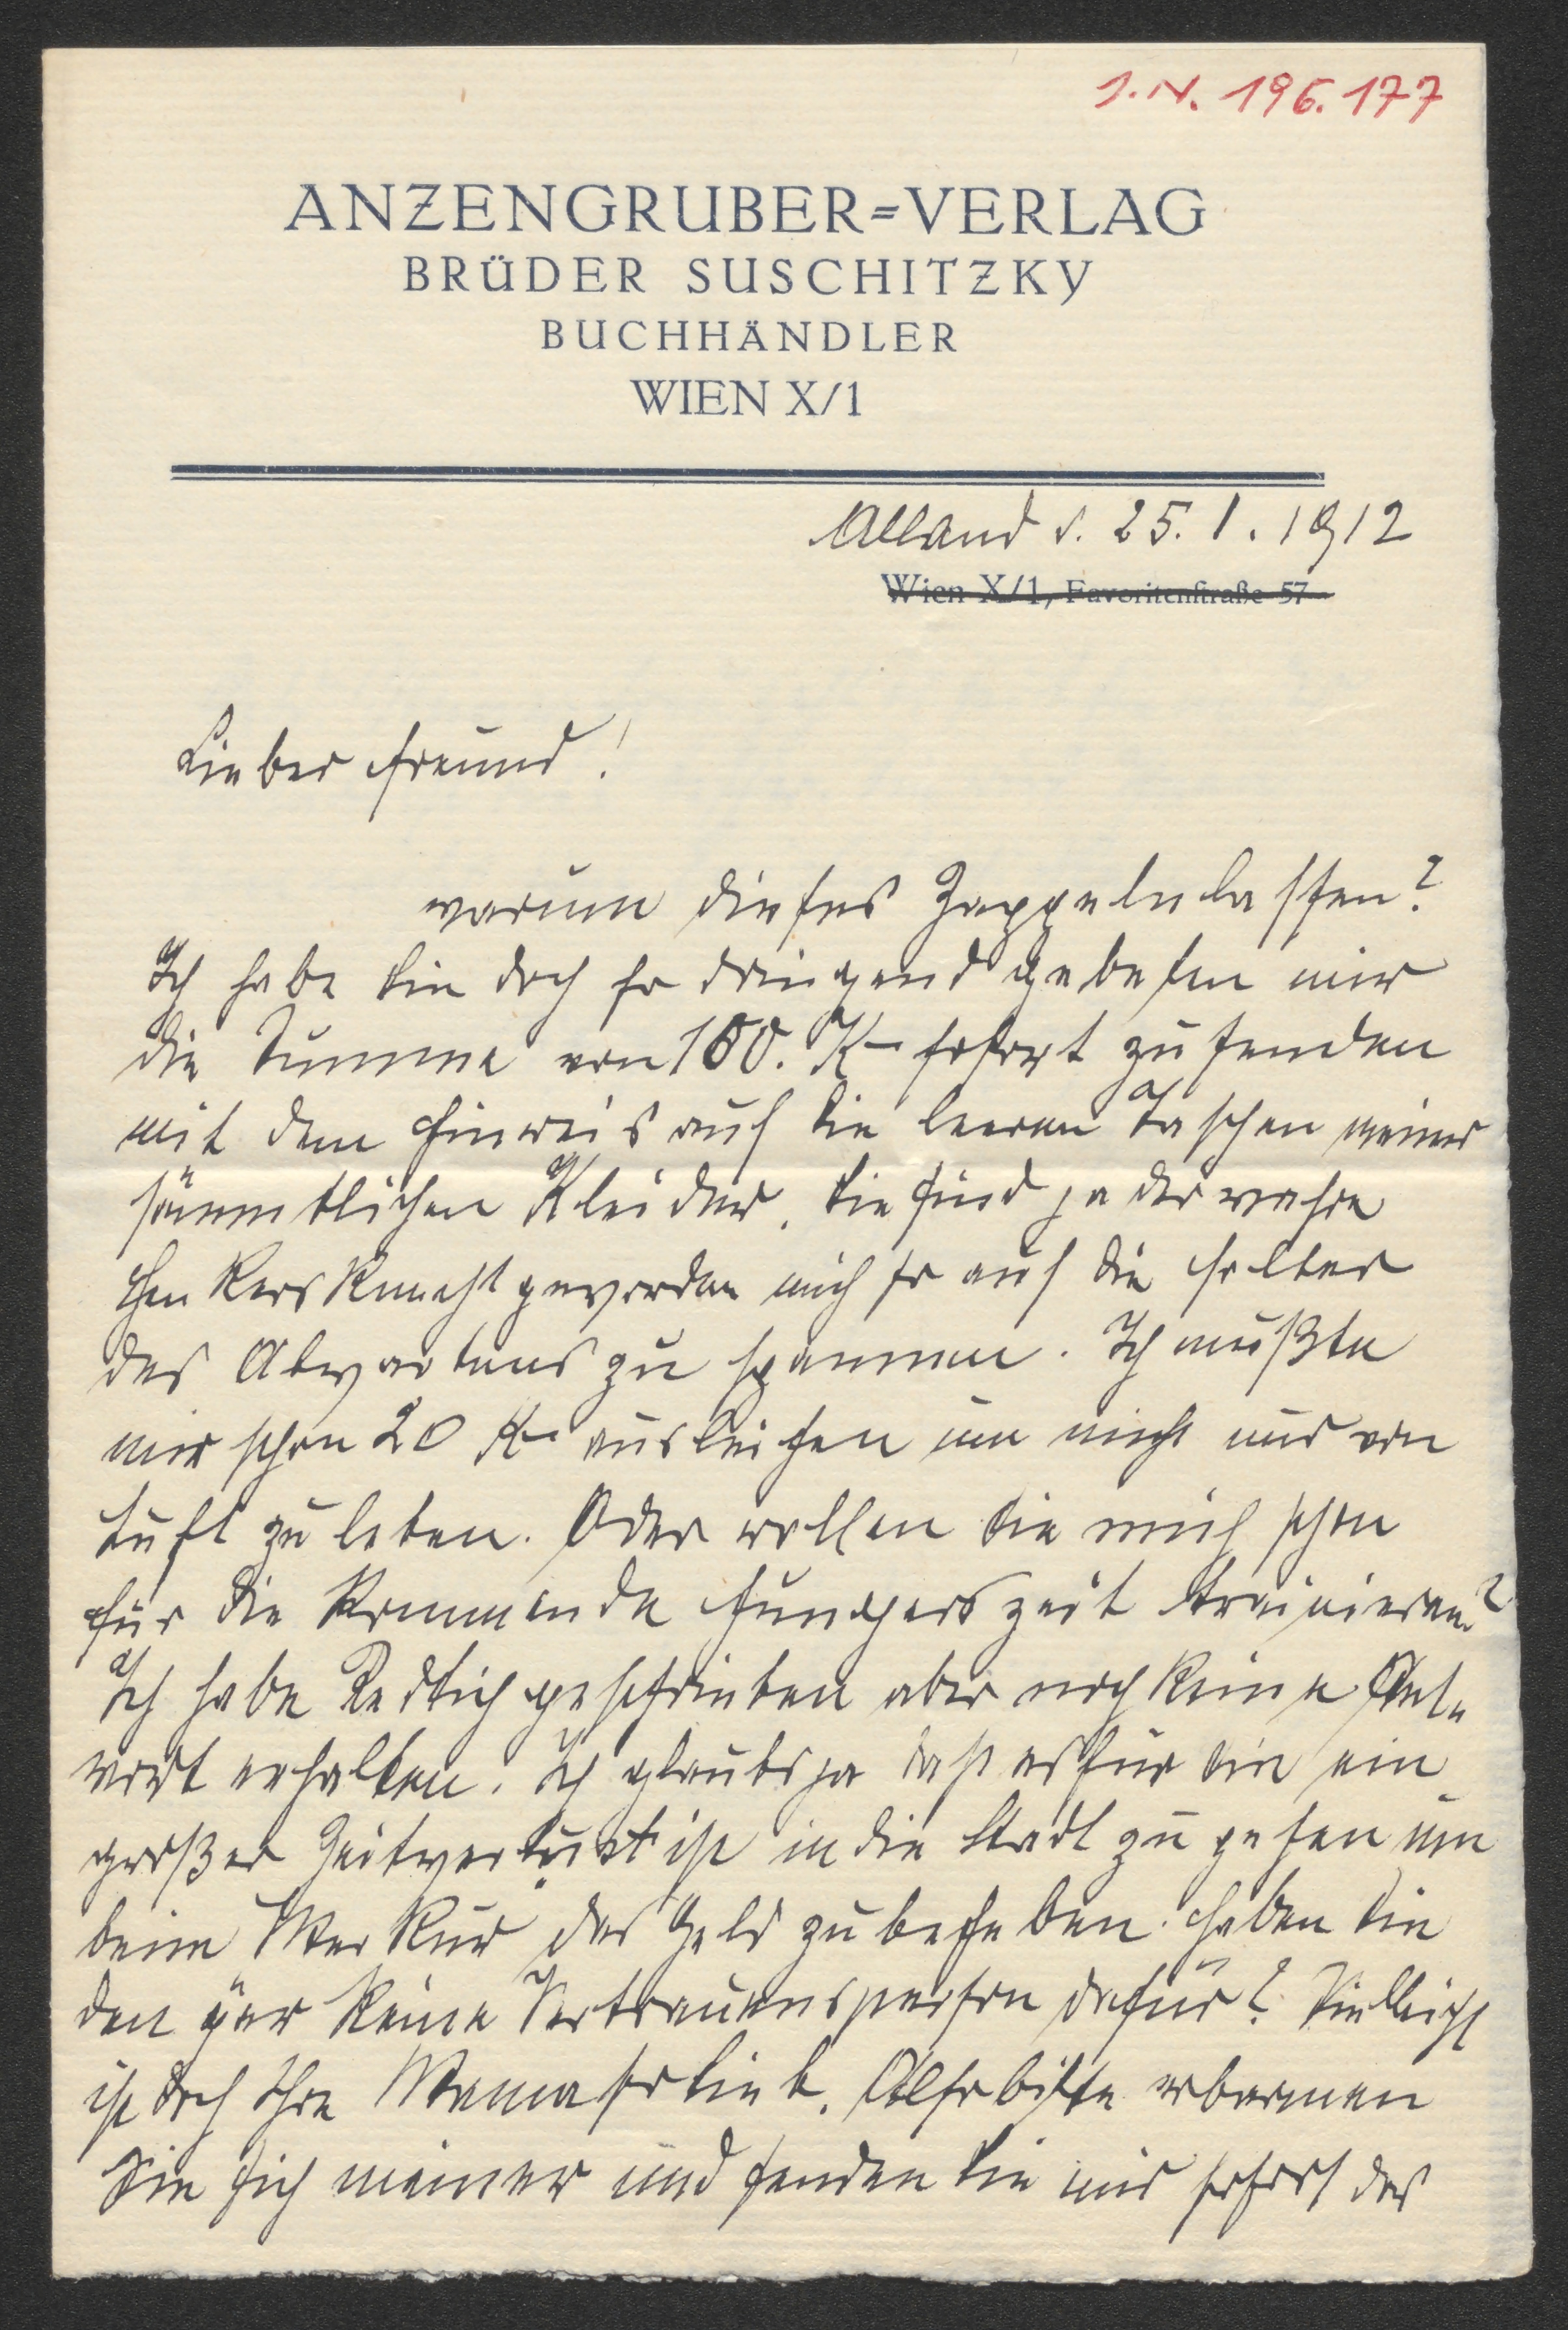 I.N. 196.177
ANZENGRUBER=VERLAG
BRÜDER SUSCHITZKY
BUCHHÄNDLER
WIEN X/1
Alland d. 25. I. 1912
Wien X/1, Favoritenstraße 57
Lieber Freund!
warum dieses Zappelnlassen?
Ich habe Sie doch so dringend gebeten mir
die Summe von 100. K– sofort zu senden
mit dem Hinweis auf die leeren Taschen meiner
sämmtlichen Kleider. Sie sind ja der wahre
Henkersknecht geworden mich so auf die Folter
des Abwartens zu spannen. Ich mußte
mir schon 20 K– ausleihen um nicht nur von
Luft zu leben. Oder wollen Sie mich schon
für die kommende Hungerszeit trainieren?
Ich habe geschrieben aber noch keine Ant=
wort erhalten. Ich glaubs ja daß es für Sie ein
großer Zeitverlust ist in die Stadt zu gehen um
beim "Merkur" das Geld zu beheben. Haben Sie
den gar keine Vertrauensperson dafür? Vielleicht
ist doch Ihre Mama so lieb. Also bitte erbarmen
Sie sich meiner und senden Sie mir sofort das